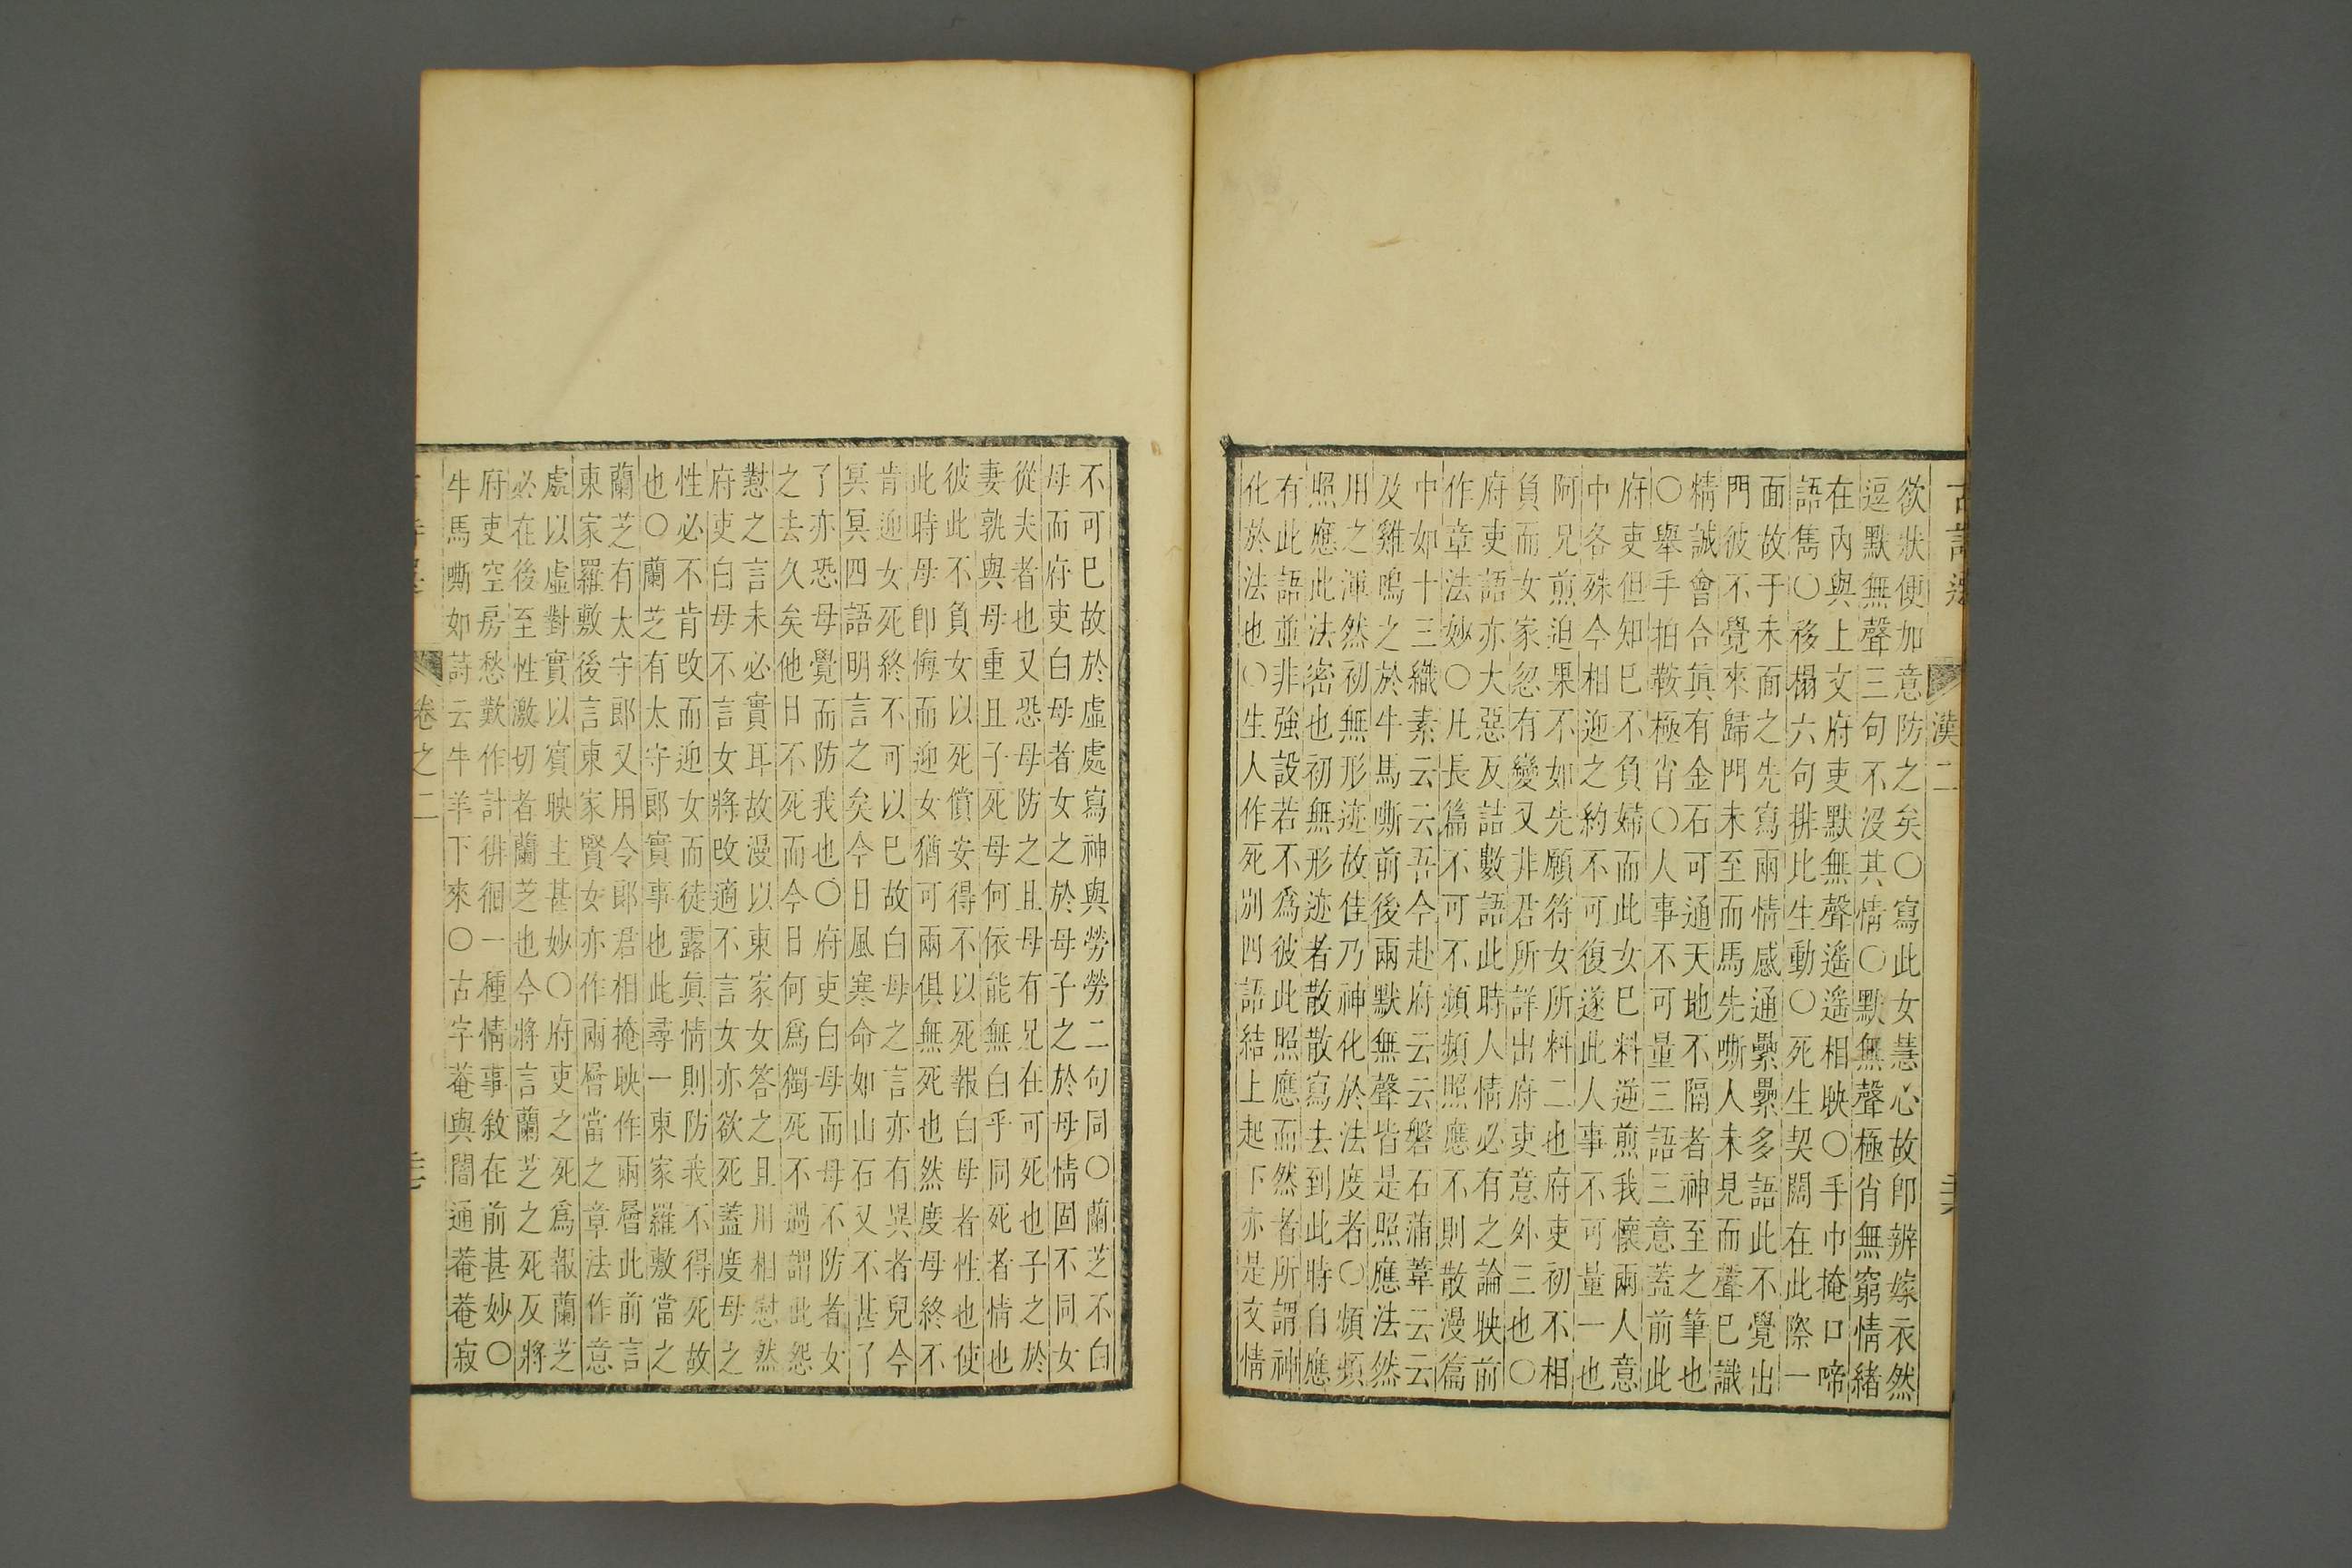 漢二
欲狀便加意防之矣○寫此女慧心故卽辨嫁衣然
逗默無聲三句不沒其情○默無聲極肖無窮情緒
在內與上文府吏默無聲遙遙相映○手巾掩口啼
語雋○移榻六句排比生動○死生契闊在此際一
面故于未面之先寫兩情感通纍纍多語此不覺出
門彼不覺來歸門未至而馬先嘶人未見而聲已識
精誠會合眞有金石可通天地不隔者神至之筆也
○舉手拍鞍極肖○人事不可量三語三意蓋前此
府吏但知已不負婦而此女已料逆煎我懷兩人意
中各殊今相迎之約不可復遂此人事不可量一也
阿兄煎迫果不如先願符女所料二也府吏初不相
負而女家忽有變又非君所詳出府吏意外三也○
府吏語亦大惡反詰數語此時人情必有之論映前
作章法妙○凡長篇不可不頻頻照應不則散漫篇
中如十三織素云云吾今赴府云云磐石蒲葦云云
及雞鳴之於牛馬嘶前後兩默無聲皆是照應法然
用之渾然初無形迹故佳乃神化於法度者○頻頻
照應此法密也初無形迹者散散寫去到此時自應
有此語並非強設若不爲彼此照應而然者所謂神
化於法也○生人作死別四語結上起下亦是文情
不可已故於虛處寫神與勞勞二句同○蘭芝不白
母而府吏白母者女之於母子之於母情固不同女
從夫者也又恐母防之且母有兄在可死也子之於
妻孰與母重且子死母何依能無白乎同死者情也
彼此不負女以死償安得不以死報白母者性也使
此時母卽悔而迎女猶可兩俱無死也然度母終不
肯迎女死終不可以已故白母之言亦有異者兒今
冥冥四語明言之矣今日風寒命如山石又不甚了
了亦恐母覺而防我也○府吏白母而母不防者女
之去久矣他日不死而今日何爲獨死不過謂此怨
懟之言未必實耳故漫以東家女答之且用相慰然
府吏白母不言女將改適不言女亦欲死蓋度母之
性必不肯改而迎女而徒露眞情則防我不得死故
也○蘭芝有太守郎實事也此尋一東家羅敷當之
蘭芝有太守郎又用令郎君相掩映作兩層此前言
東家羅敷後言東家賢女亦作兩層當之章法作意
處以虛對實以賓映主甚妙○府吏之死爲報蘭芝
必在後至性激切者蘭芝也今將言蘭芝之死反將
府吏空房愁歎作計徘徊一種情事敘在前甚妙○
牛馬嘶如詩云牛羊下來○古字菴與闇通菴菴寂
卷之二